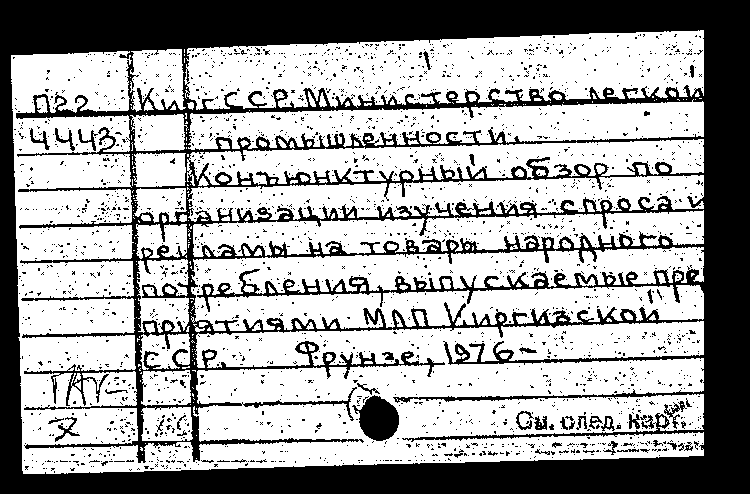 П22 КиргССР. Министерство легкой
4443 промышленности.
Конъюнктурный обзор по
организации изучения спроса и
рекламы на товары народного
потребления, выпускаемые пре
приятиями МЛП Киргизской
ССР. Фрунзе, 1976-
См. след. карт.